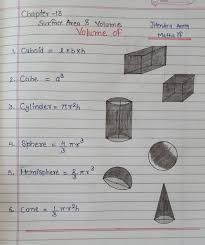 Chapter-13
Surface Area & Volume
Volume of
Jitendra Arora
Maths Pf
1. Cuboid = l×b×h
2. Cube = a³
3. Cylinder = πr²h
4. Sphere = 4/3 πr³
5. Hemisphere = 2/3 πr³
6. Cone = 1/3 πr²h